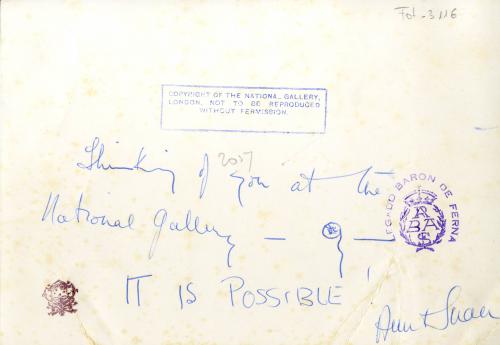 Fot-3116
COPYRIGHT OF THE NATIONAL GALLERY,
LONDON, NOT TO BE REPRODUCED
WITHOUT PERMISSION.
2057
Thinking of you at the
National Gallery —
IT IS POSSIBLE!
LEGADO BARON DE FERNA
RABAS